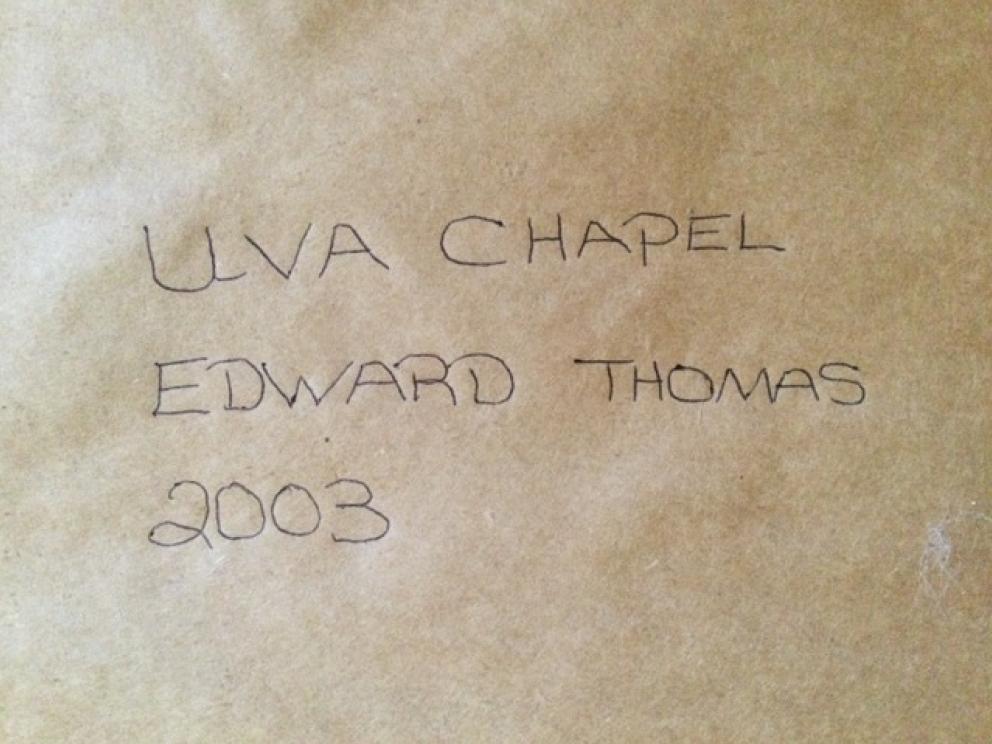 UVA CHAPEL
EDWARD THOMAS
2003